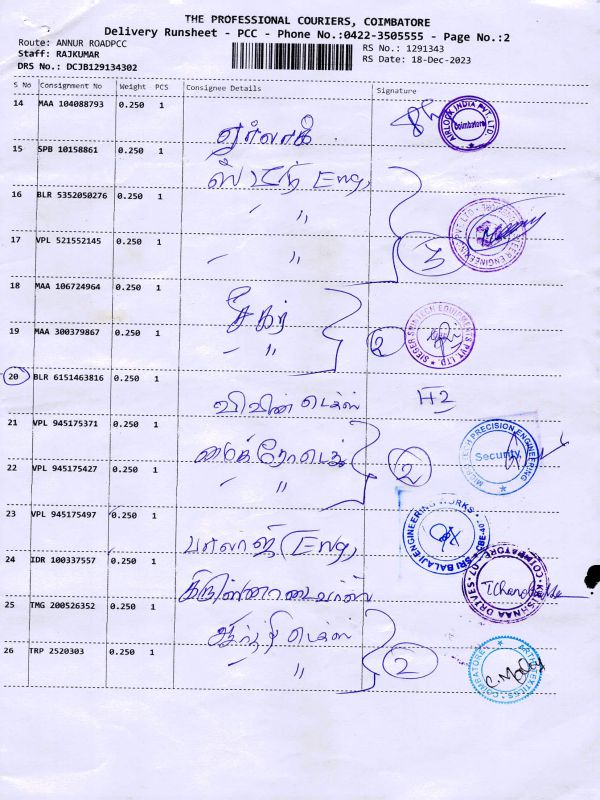 THE PROFESSIONAL COURIERS, COIMBATORE
Delivery Runsheet - PCC - Phone No.:0422-3505555 - Page No.:2
Route: ANNUR ROADPCC
RS No.: 1291343
Staff: RAJKUMAR
RS Date: 18-Dec-2023
DRS No.: DCJB129134302
S No Consignment No Weight PCS Consignee Details Signature
14 MAA 104088793 0.250 1
AIRLOCK INDIA PVT. LTD
Coimbatore
15 SPB 10158861 0.250 1
Eng,
16 BLR 5352050276 0.250 1 " "
17 VPL 521552145 0.250 1 " " 3
18 MAA 106724964 0.250 1
சேகர்
19 MAA 300379867 0.250 1 " " 2
SIEGER SPINTECH EQUIPMENTS PVT. LTD.
20 BLR 6151463816 0.250 1
விபின் டெக்ஸ் H2
21 VPL 945175371 0.250 1
மைக்ரோடெக்
MICROTECH PRECISION ENGINEERING
Security
22 VPL 945175427 0.250 1 " " 2
23 VPL 945175497 0.250 1
பாலாஜி Eng,
SRI BALAJI ENGINEERING WORKS
24 IDR 100337557 0.250 1
KRISHNAA DRIVES
COIMBATORE
25 TMG 200526352 0.250 1
26 TRP 2520303 0.250 1 " " 2
COIMBATORE